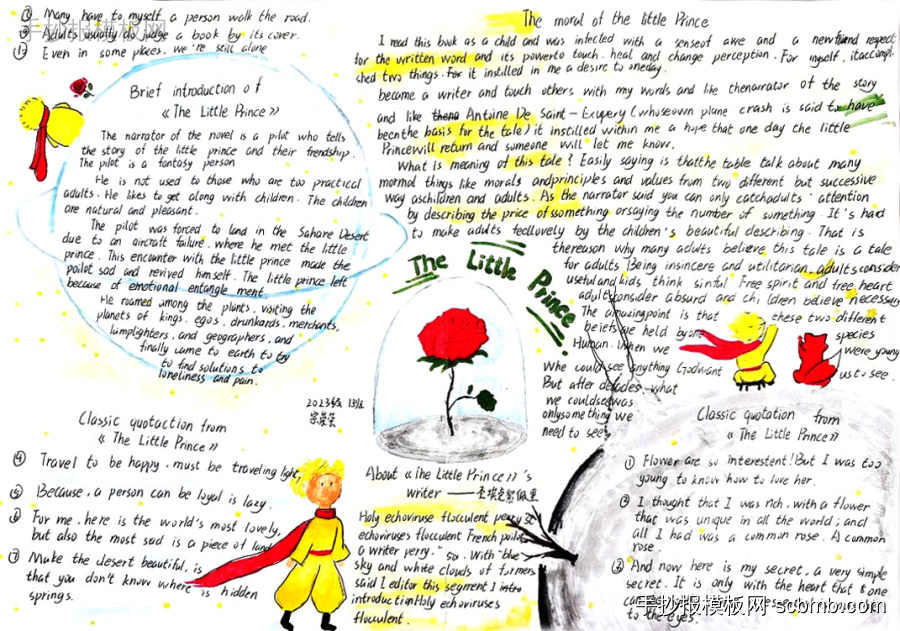 ⑧ Many have to myself a person walk the road.
⑨ Adults usually do judge a book by its cover.
⑩ Even in some places. we're still alone
手抄报模板网
Brief introduction of
《The Little Prince》
The narrator of the novel is a pilot who tells
the story of the little prince and their frendship.
The pilot is a fantasy person
He is not used to those who are too practical
adults. He likes to get along with children. The children
are natural and pleasant.
The pilot was forced to land in the Sahare Desert
due to an aircraft failure. where he met the little
prince. This encounter with the little prince made the
poilot sad and revived himself. The little prince left
because of emotional entangle ment
He roamed among the plants. visiting the
planets of kings. egos. drunkards. merchants.
lamplighters. and geographers. and
finally came to earth to try
to find solutions to
loneliness and pain.
2023级 13班
Classic quotaction from
《The Little Prince》
④ Travel to be happy. must be traveling light.
⑤ Because. a person can be loyal is lazy.
⑥ For me. here is the world's most lovely.
but also the most sad is a piece of land
⑦ Make the desert beautiful. is
that you don't know where is hidden
springs.
The moral of the little Prince
I read this book as a child and was infected with a senseof awe and a new respect
for the written word and its powerto touch. heal and change perception. For myself. itaccompli
shed two things. For it instilled in me a desire to oneday
become a writer and touch others with my words and like thenarrator of the story
and like Antoine De Saint-Exupery (whoseown plane crash is said to have
beenthe basis for the tale) it instilled within me a hope that one day the little
Princewill return and someone will let me know.
What is meaning of this tale? Easily saying is thatthe table talk about many
mormal things like morals andprinciples and values from two different but successive
way aschildren and adults. As the narrator said you can only catchadults' attention
by describing the price ofsomething orsaying the number of something. It's had
to make adults feellovely by the children's beautiful describing. That is
thereason why many adults believe this tale is a tale
for adults Being insincere and utilitarian. adults consider
usefuland kids think sinful Free spirit and free heart
adult consider absurd and chi ldren believe necessary
The amazingpoint is that these two different
beriefs are held by one species
Human. When we were young
Who could see anything Godwant us to see.
But after decades what
we couldsee was
onlysomething we
need to see
The Little Prince
About 《The Little Prince》's
writer ——圣埃克絮佩里
Holy echoviruse flocculent perry
echoviruses flocculent French pilot
a writer perry." so. With "blue
sky and white clouds of farmers
said I editor this segment I
introductionHoly echoviruses
flocculent.
Classic quotation from
《The Little Prince》
① Flower are so interestent! But I was too
young to know how to love her.
② I thought that I was rich. with a flower
that was unique in all the world; and
all I had was a common rose. A common
rose.
③ And now here is my secret, a very simple
secret. It is only with the heart that one
can
to the eyes.
手抄报模板网 scbmb.com